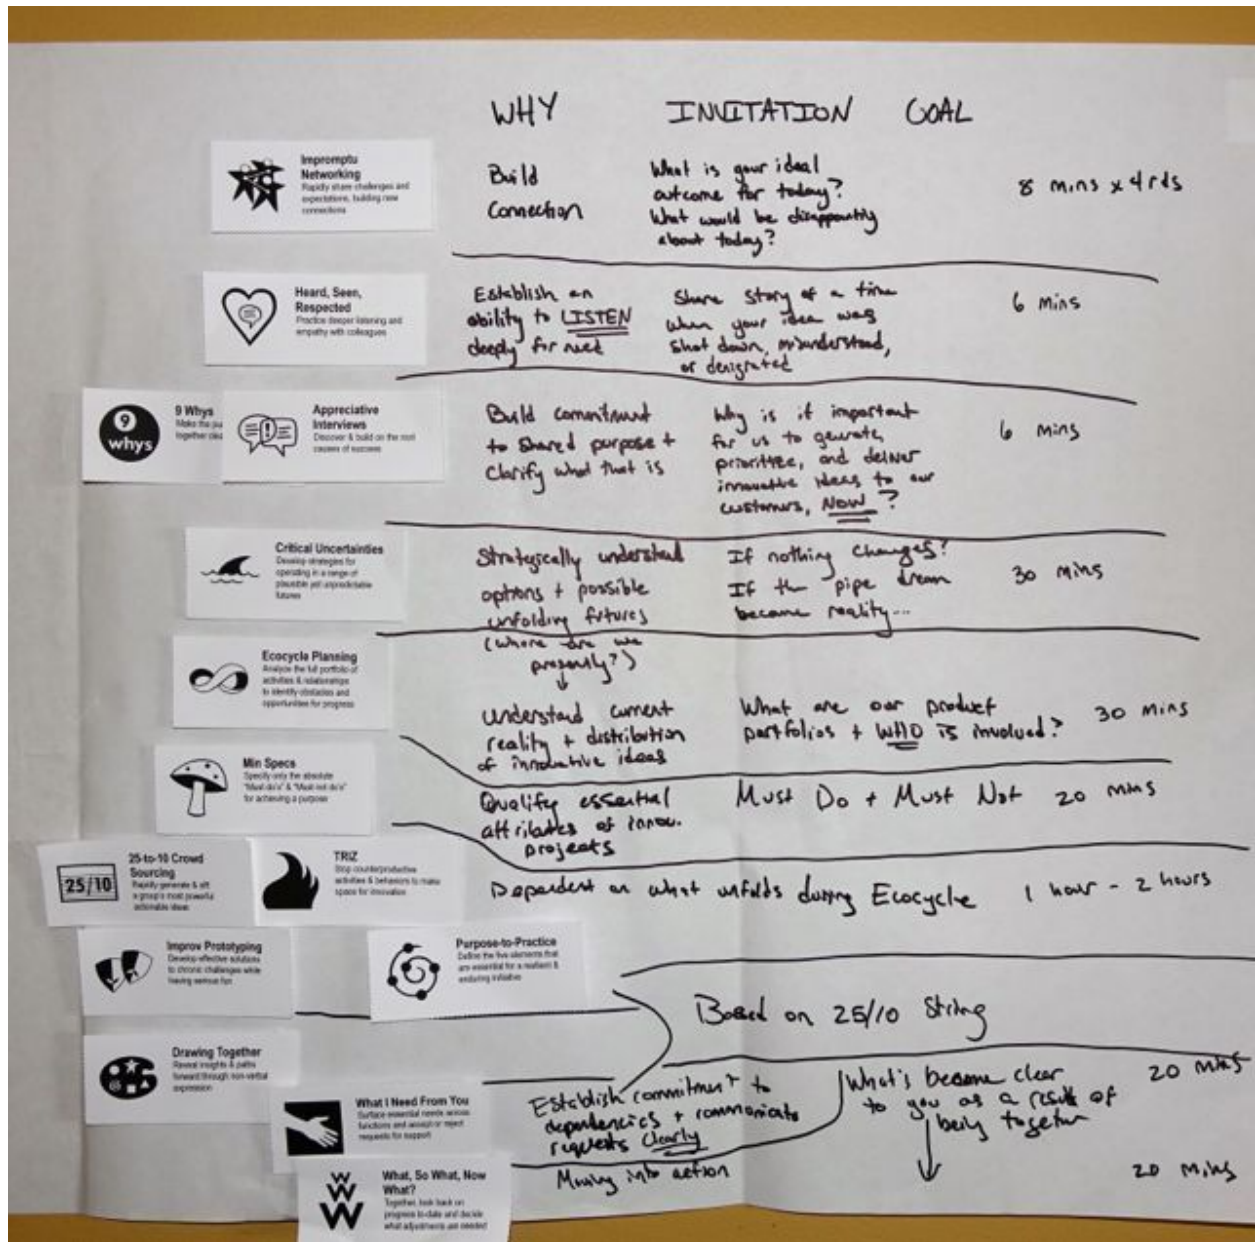 WHY INVITATION GOAL
Impromptu
Networking
Rapidly share challenges and
expectations, building new
connections
Build
Connection
What is your ideal
outcome for today?
What would be disappointing
about today?
8 mins x 4 rds
Heard, Seen,
Respected
Practice deeper listening and
empathy with colleagues
Establish an
ability to LISTEN
deeply for need
Share story of a time
when your idea was
shot down, misunderstood,
or denigrated
6 mins
9
whys
9 Whys
Make the pu
together clea
Appreciative
Interviews
Discover & build on the root
causes of success
Build commitment
to shared purpose +
Clarify what that is
Why is it important
for us to generate,
prioritize, and deliver
innovative ideas to our
customers, NOW?
6 mins
Critical Uncertainties
Develop strategies for
operating in a range of
plausible yet unpredictable
futures
Strategically understand
options + possible
unfolding futures
(where are we
presently?)
If nothing changes?
If the pipe dream
became reality...
30 mins
Ecocycle Planning
Analyze the full portfolio of
activities & relationships
to identify obstacles and
opportunities for progress
Understand current
reality + distribution
of innovative ideas
What are our product
portfolios + WHO is involved?
30 mins
Min Specs
Specify only the absolute
"Must do's" & "Must not do's"
for achieving a purpose
Qualify essential
attributes of innov.
projects
Must Do + Must Not 20 mins
25/10
25-to-10 Crowd
Sourcing
Rapidly generate & sift
a group's most powerful
actionable ideas
TRIZ
Stop counterproductive
activities & behaviors to make
space for innovation
Dependent on what unfolds during Ecocycle 1 hour - 2 hours
Improv Prototyping
Develop effective solutions
to chronic challenges while
having serious fun
Purpose-to-Practice
Define the five elements that
are essential for a resilient &
enduring initiative
Based on 25/10 String
Drawing Together
Reveal insights & paths
forward through non-verbal
expression
What I Need From You
Surface essential needs across
functions and accept or reject
requests for support
Establish commitment to
dependencies + communicate
requests clearly
What's become clear
to you as a result of
being together
20 mins
W
W
W
What, So What, Now
What?
Together, look back on
progress to-date and decide
what adjustments are needed
Moving into action
20 mins